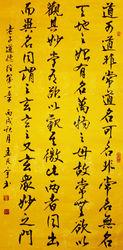 道可道非常道名可名非常名無名
天地之始有名萬物之母故常無欲以
觀其妙常有欲以觀其徼此兩者同出
而異名同謂之玄玄之又玄衆妙之門
老子道德經第一章 丙戌秋月